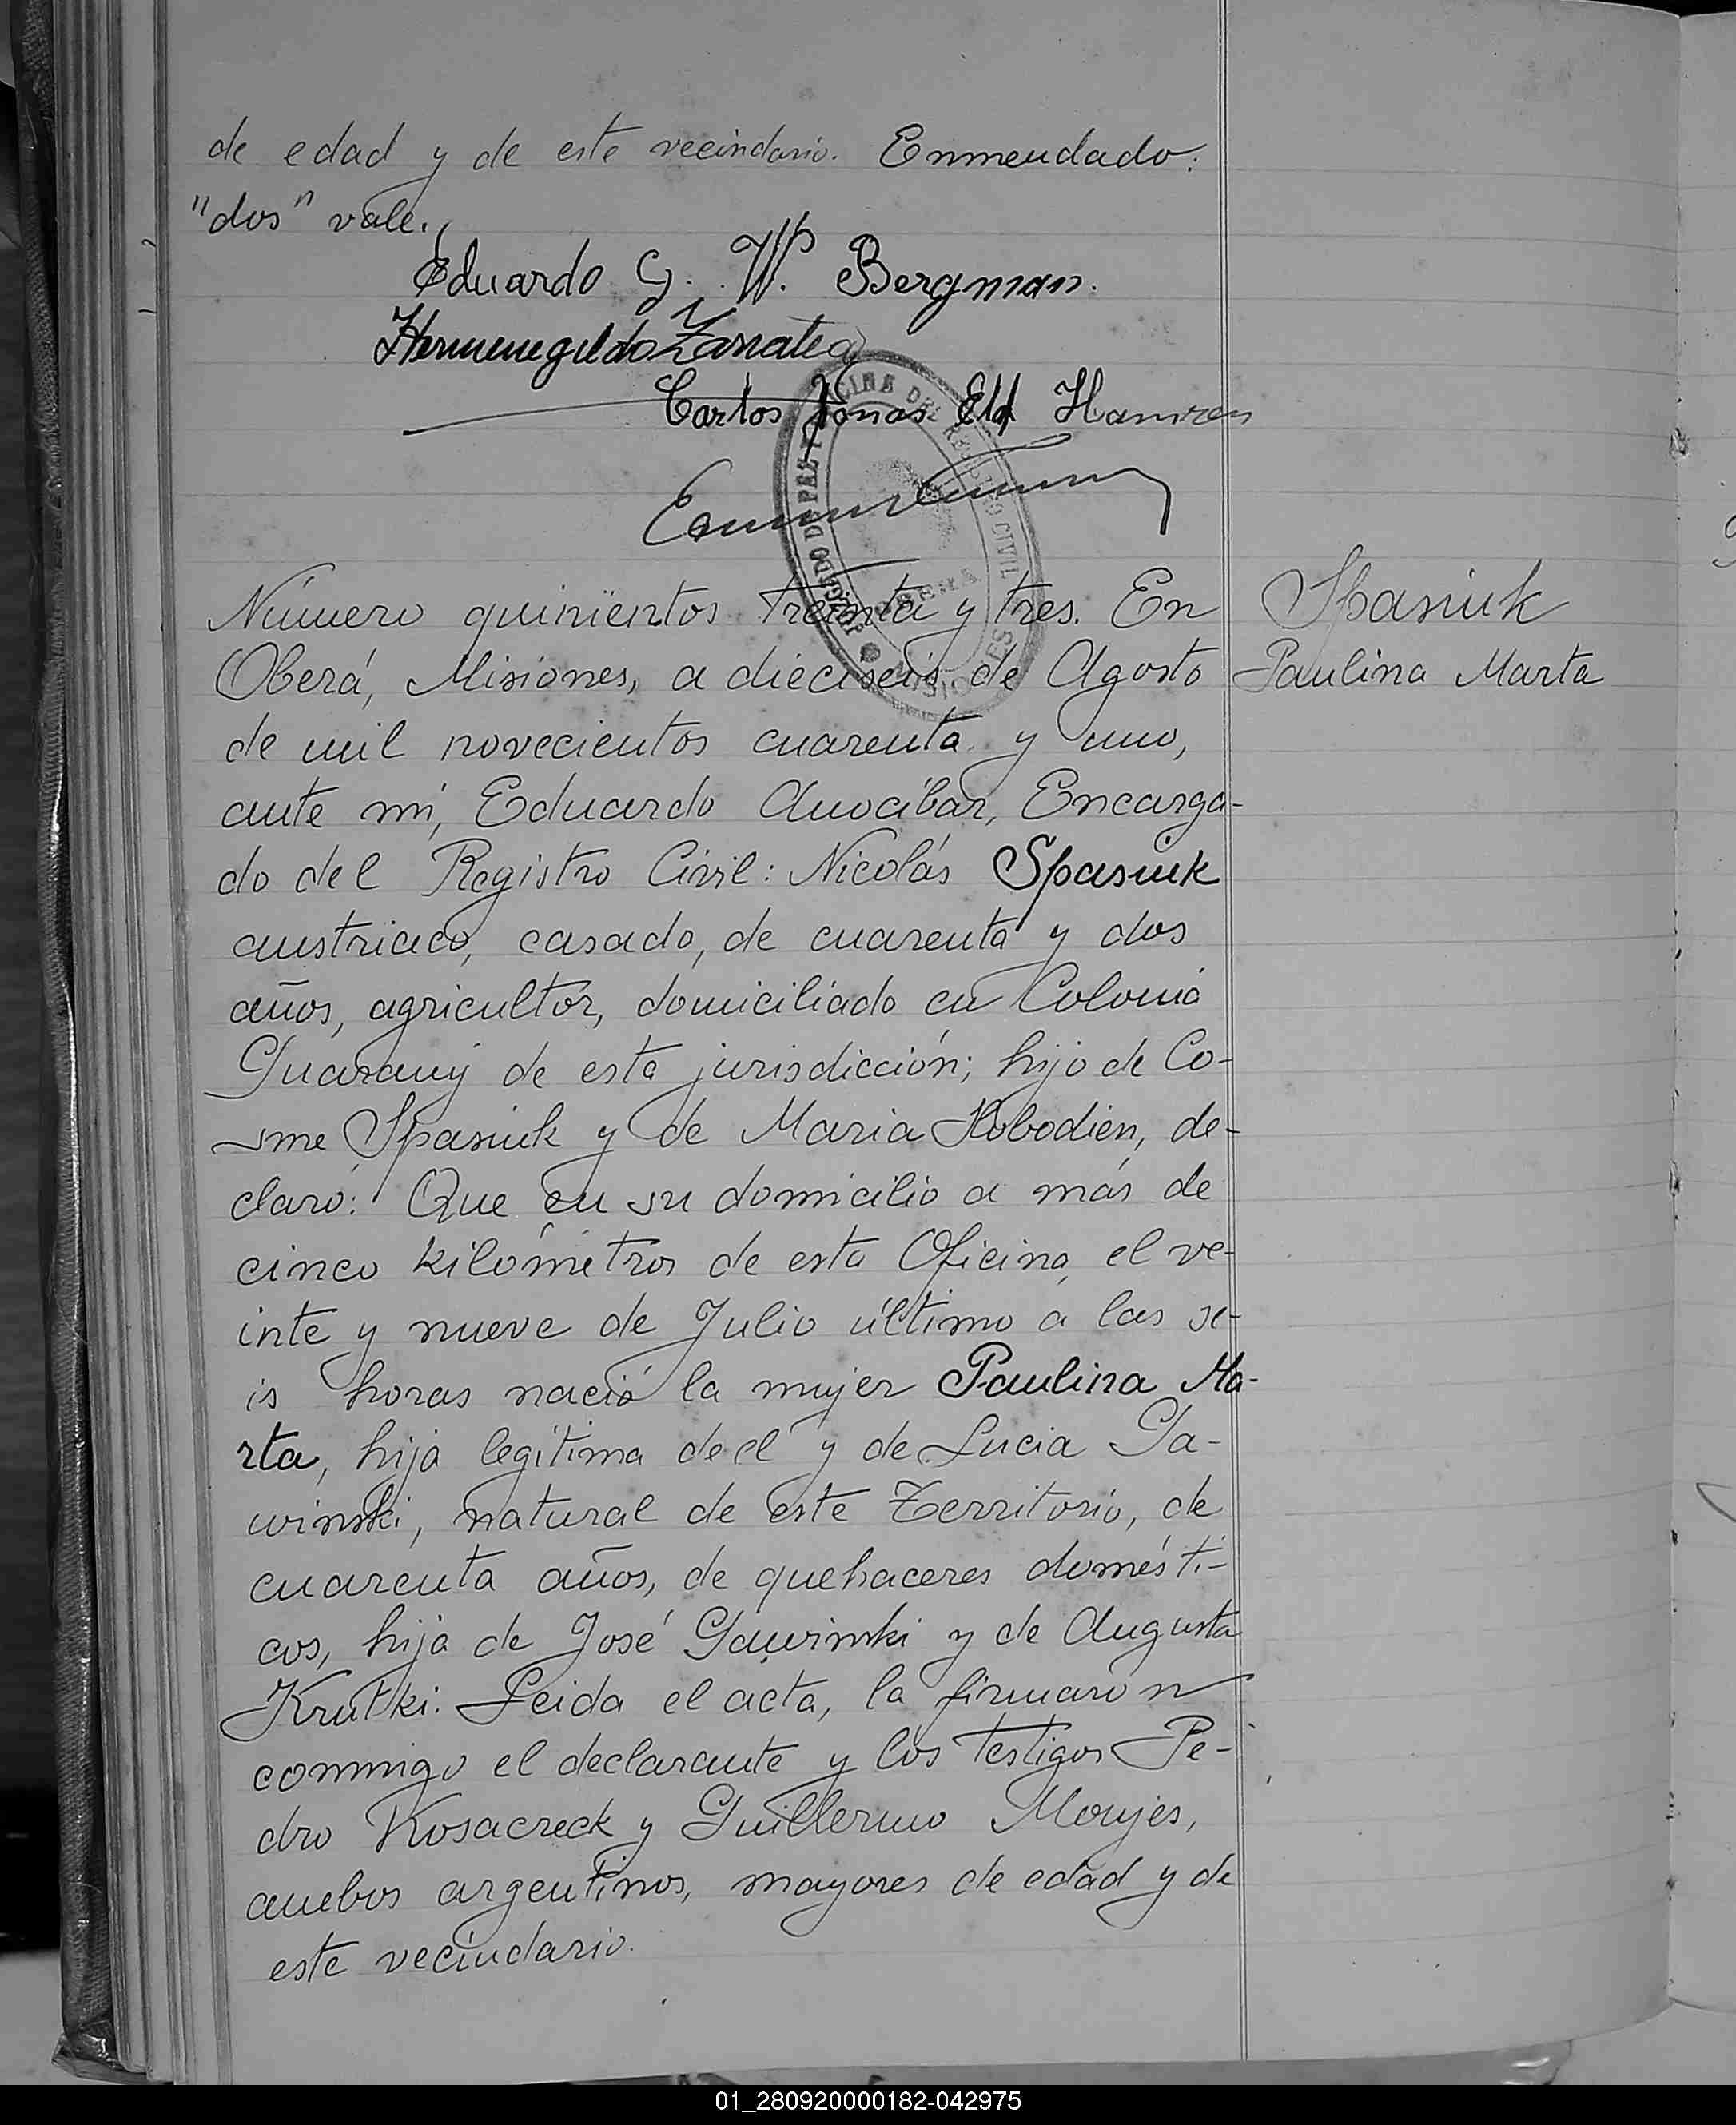 de edad y de este vecindario. Enmendado:
"dos" vale.
Eduardo G. W. Bergman.
Hermenegildo Zarratea
Carlos Jonas Eld Hamren
JUZGADO DE PAZ Y OFICINA DEL REGISTRO CIVIL
OBERA
MISIONES
Número quinientos treinta y tres. En
Oberá, Misiones, a dieciseis de Agosto
de mil novecientos cuarenta y uno,
ante mí, Eduardo Anocibar, Encarga-
do del Registro Civil: Nicolás Spasiuk
austriaco, casado, de cuarenta y dos
años, agricultor, domiciliado en Colonia
Guarany de esta jurisdicción; hijo de Co-
sme Spasiuk y de Maria Kobodien, de-
claró: Que en su domicilio a más de
cinco kilómetros de esta Oficina, el ve-
inte y nueve de Julio último a las se-
is horas nació la mujer Paulina Ma-
rta, hija legítima de el y de Lucia Ga-
winski, natural de este Territorio, de
cuarenta años, de quehaceres domésti-
cos, hija de José Gawinski y de Augusta
Krutki. Leida el acta, la firmaron
conmigo el declarante y los testigos Pe-
dro Kosacreck y Guillermo Monjes,
ambos argentinos, mayores de edad y de
este vecindario.
Spasiuk
Paulina Marta
01_280920000182-042975